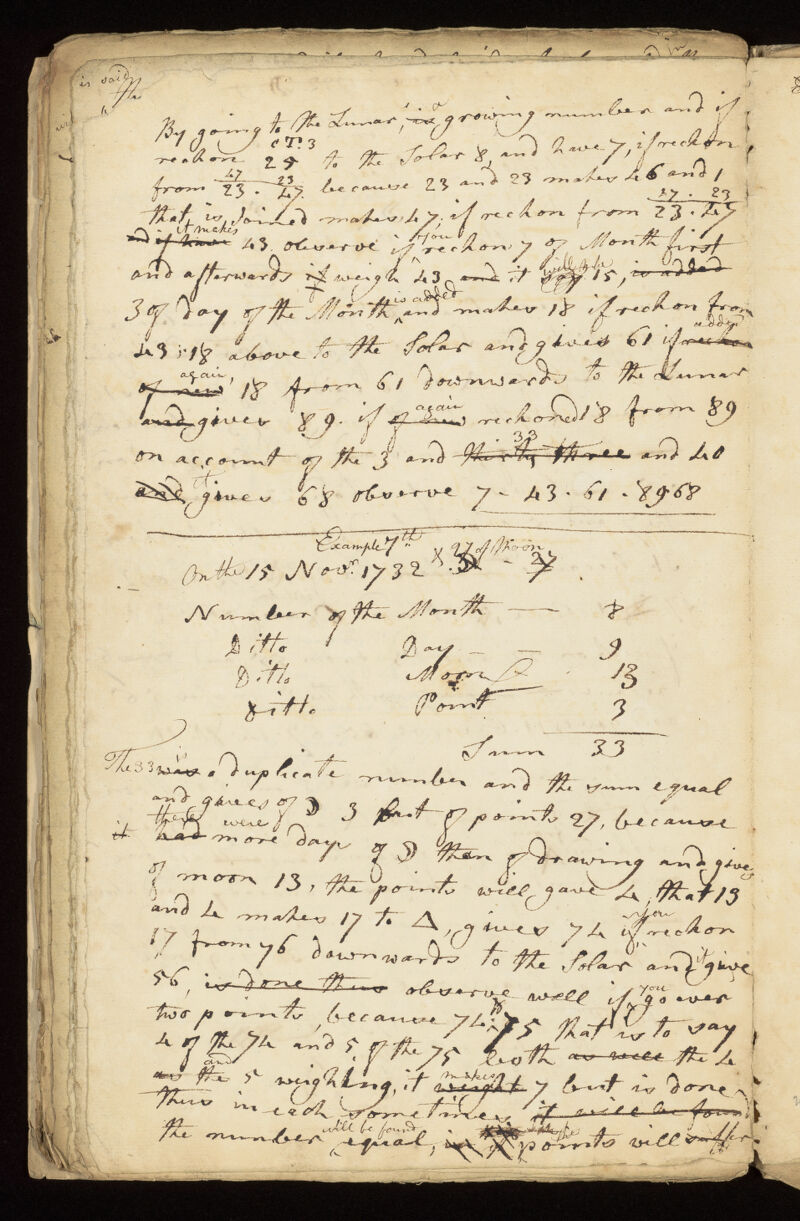 is said
the
By going to the Lunar, is growing number and if
cT. 3
reckon 25 to the Solar 8, and have 7, if reckon
47 23
from 23 . 47. because 23 and 23 makes 46 and 1
47 . 23
that is Joined makes 47, if reckon from 23 . 47
it makes you
and if have 43 observe if reckon 7 of Month first
will be
and afterwards if weigh 43 and it 15, is added
is added
3 of day of the Month and makes 18 if reckon from
adding
43 : 18 above to the Solar and gives 61 if reckon
again,
of new 18 from 61 downwards to the Lunar
again
and gives 89. if of new reckoned 18 from 89
33
on account of the 3 and thirty three and 40
it
and gives 68 observe 7 - 43 . 61 . 89 68
Example 7th
27 of Moon
On the 15 Novr. 1732 - 27
Number of the Month — 8
Ditto Day — — 9
Ditto Moon 13
Ditto Point 3
Sum 33
The 33 was a duplicate number and the sum equal
and gives of ☽ 3 but of points 27, because
there were
it had more days of ☽ then of drawing and gives
of moon 13, the points will gave 4, that 13
and 4 makes 17 to Δ, gives 74 if you reckon
17 from 76 downwards to the Solar and it give
56, is done thus observe well if you go over
two points, because 74 75 that is to say
4 of the 74 and 5 of the 75 both as well the 4
and makes
as the 5 weighing, it weight 7 but is done
thus in each sometimes it will be found
will be found
the number equal, points will suffer